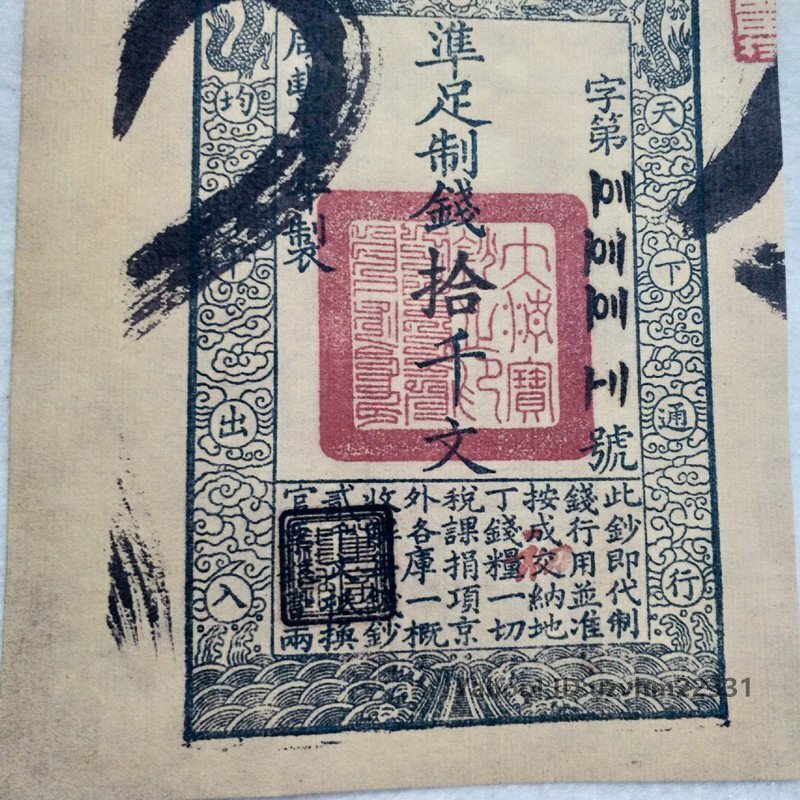 天下通行
字第
號
準足制錢拾千文
年製
均平出入
此鈔即代制
錢行用並准
按成交納地
丁錢糧一切
稅課捐項京
外各庫一概
收鈔
貳千文換
官兩
大清寶鈔之印